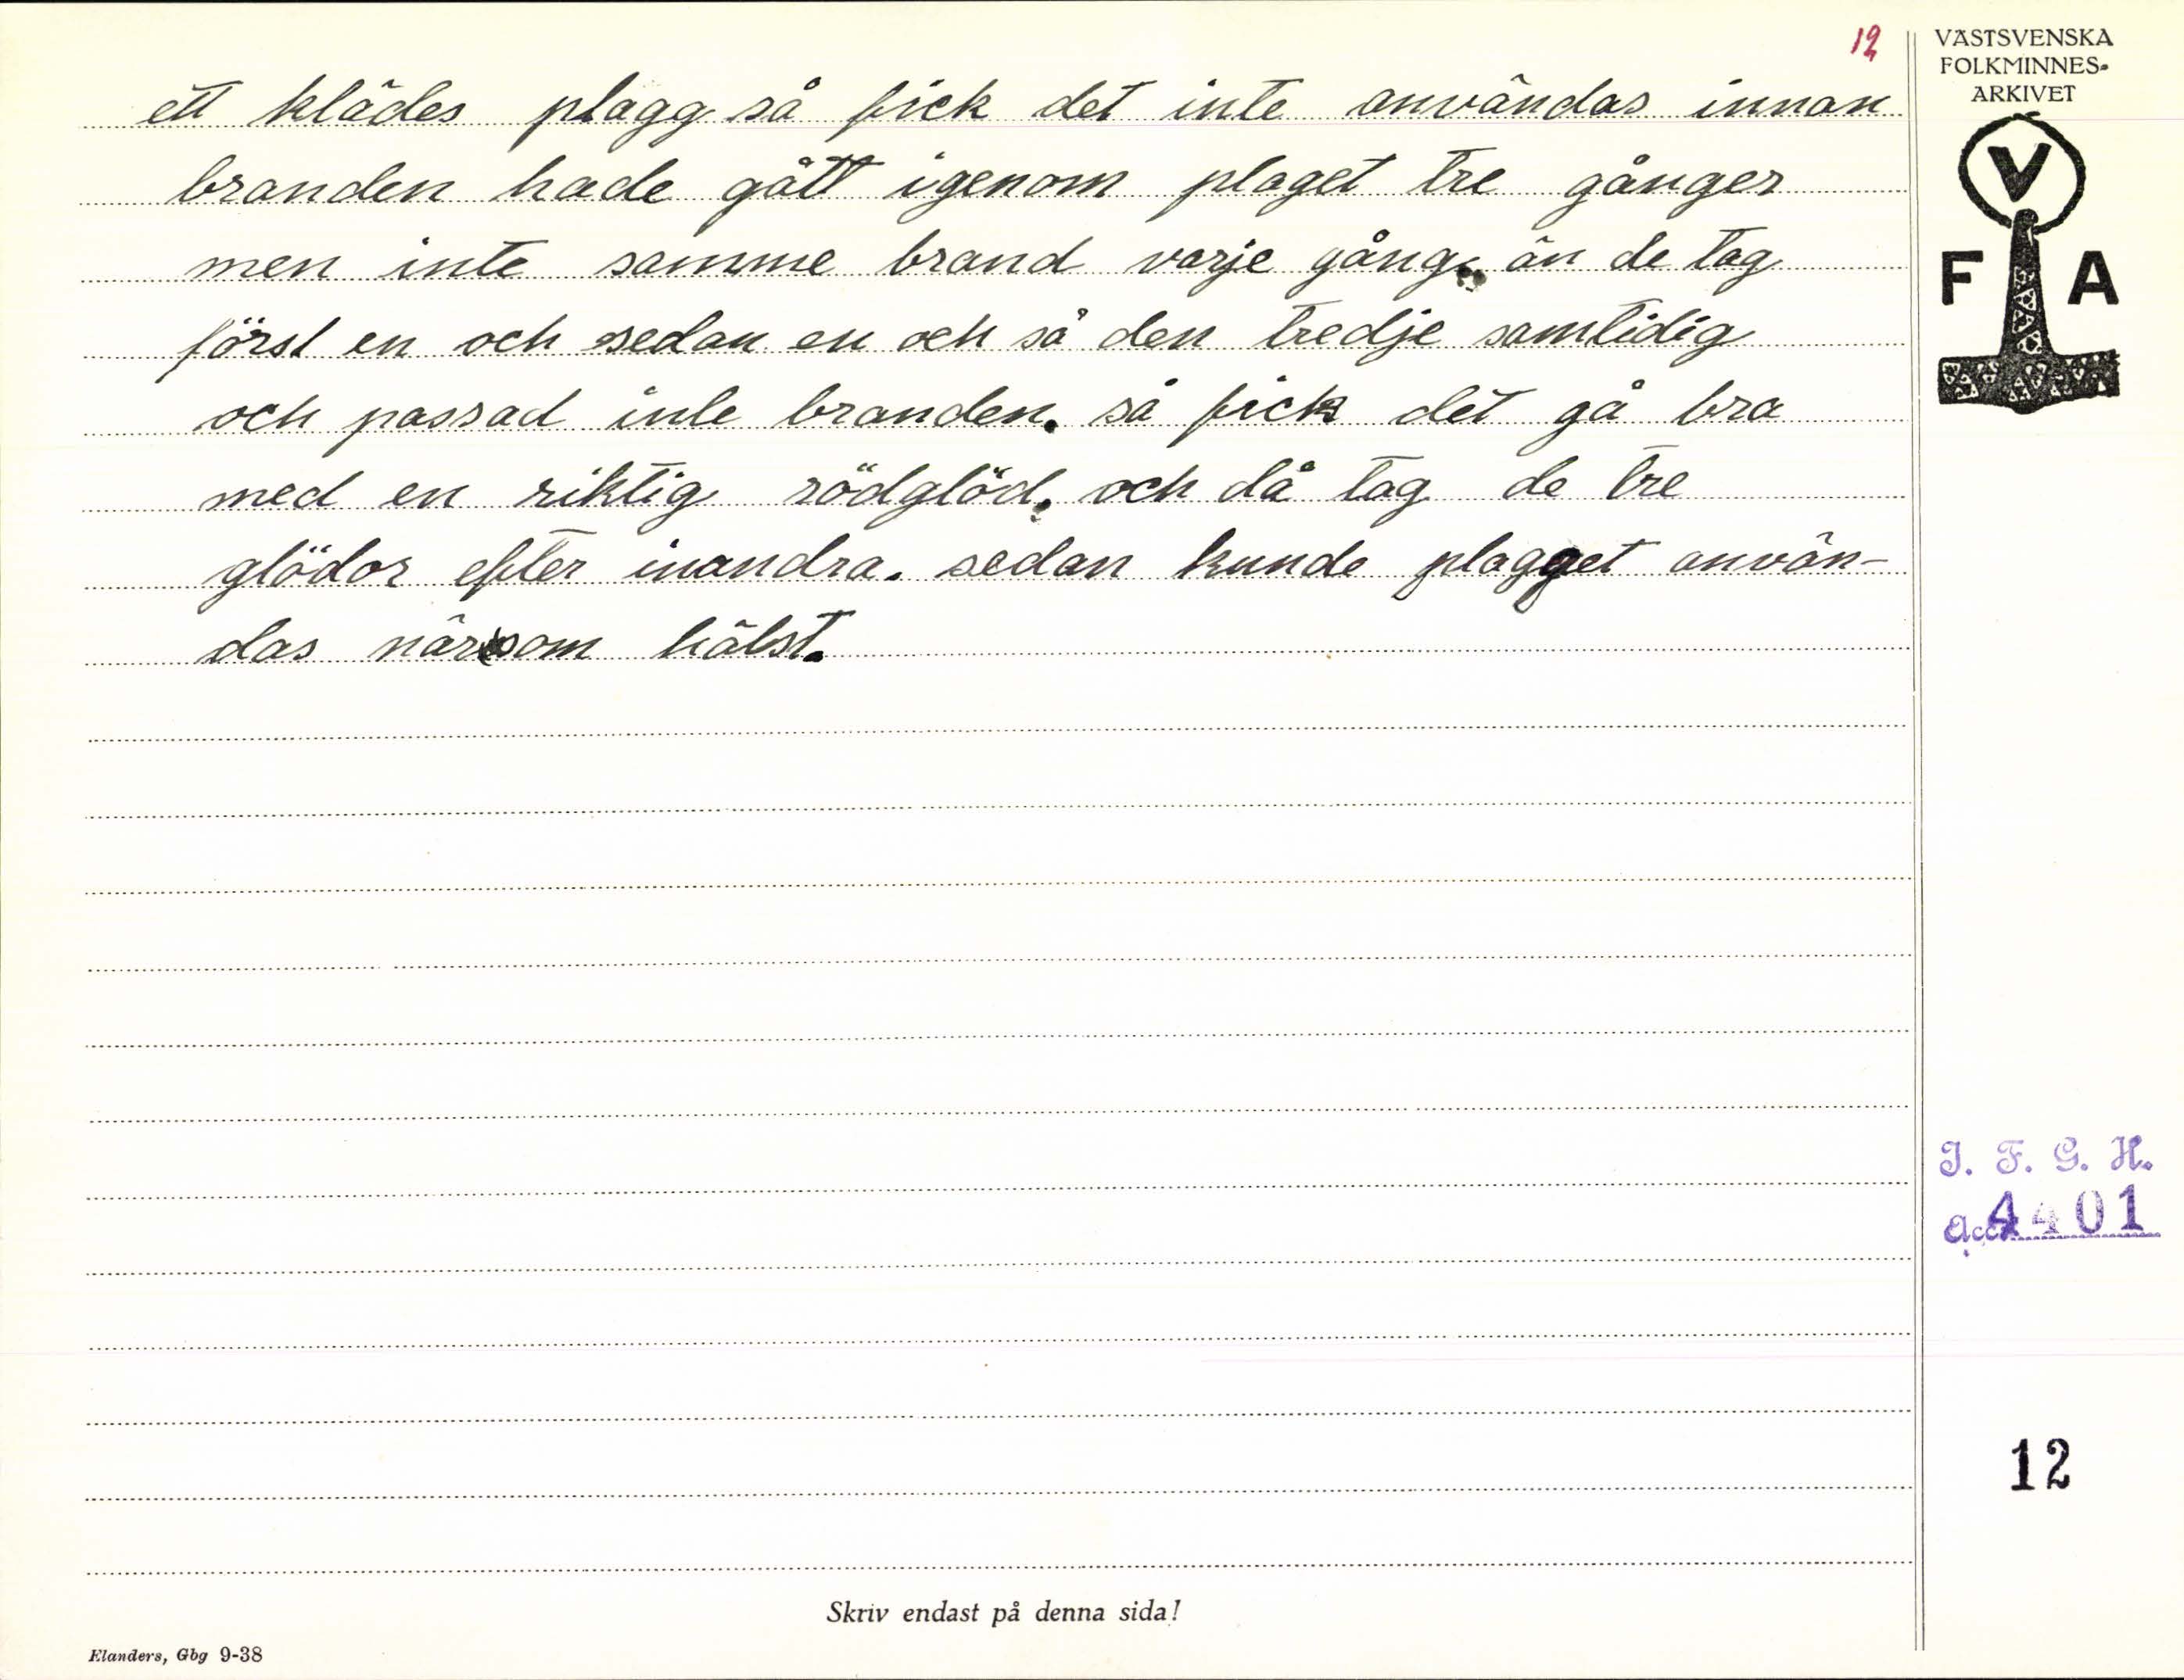 12
ett klädes plagg så fick det inte användas innan
branden hade gått igenom plaget tre gånger
men inte samme brand varje gång. än de tag
först en och sedan en och så den tredje samtidig
och passad inte branden. så fick det gå bra
med en riktig rödglöd. och då tag de tre
glödor efter inandra. sedan kunde plagget använ-
das närsom hälst.
VÄSTSVENSKA
FOLKMINNES-
ARKIVET
V
F A
I. F. G. H.
Acc. 4401
12
Skriv endast på denna sida!
Elanders, Gbg 9-38